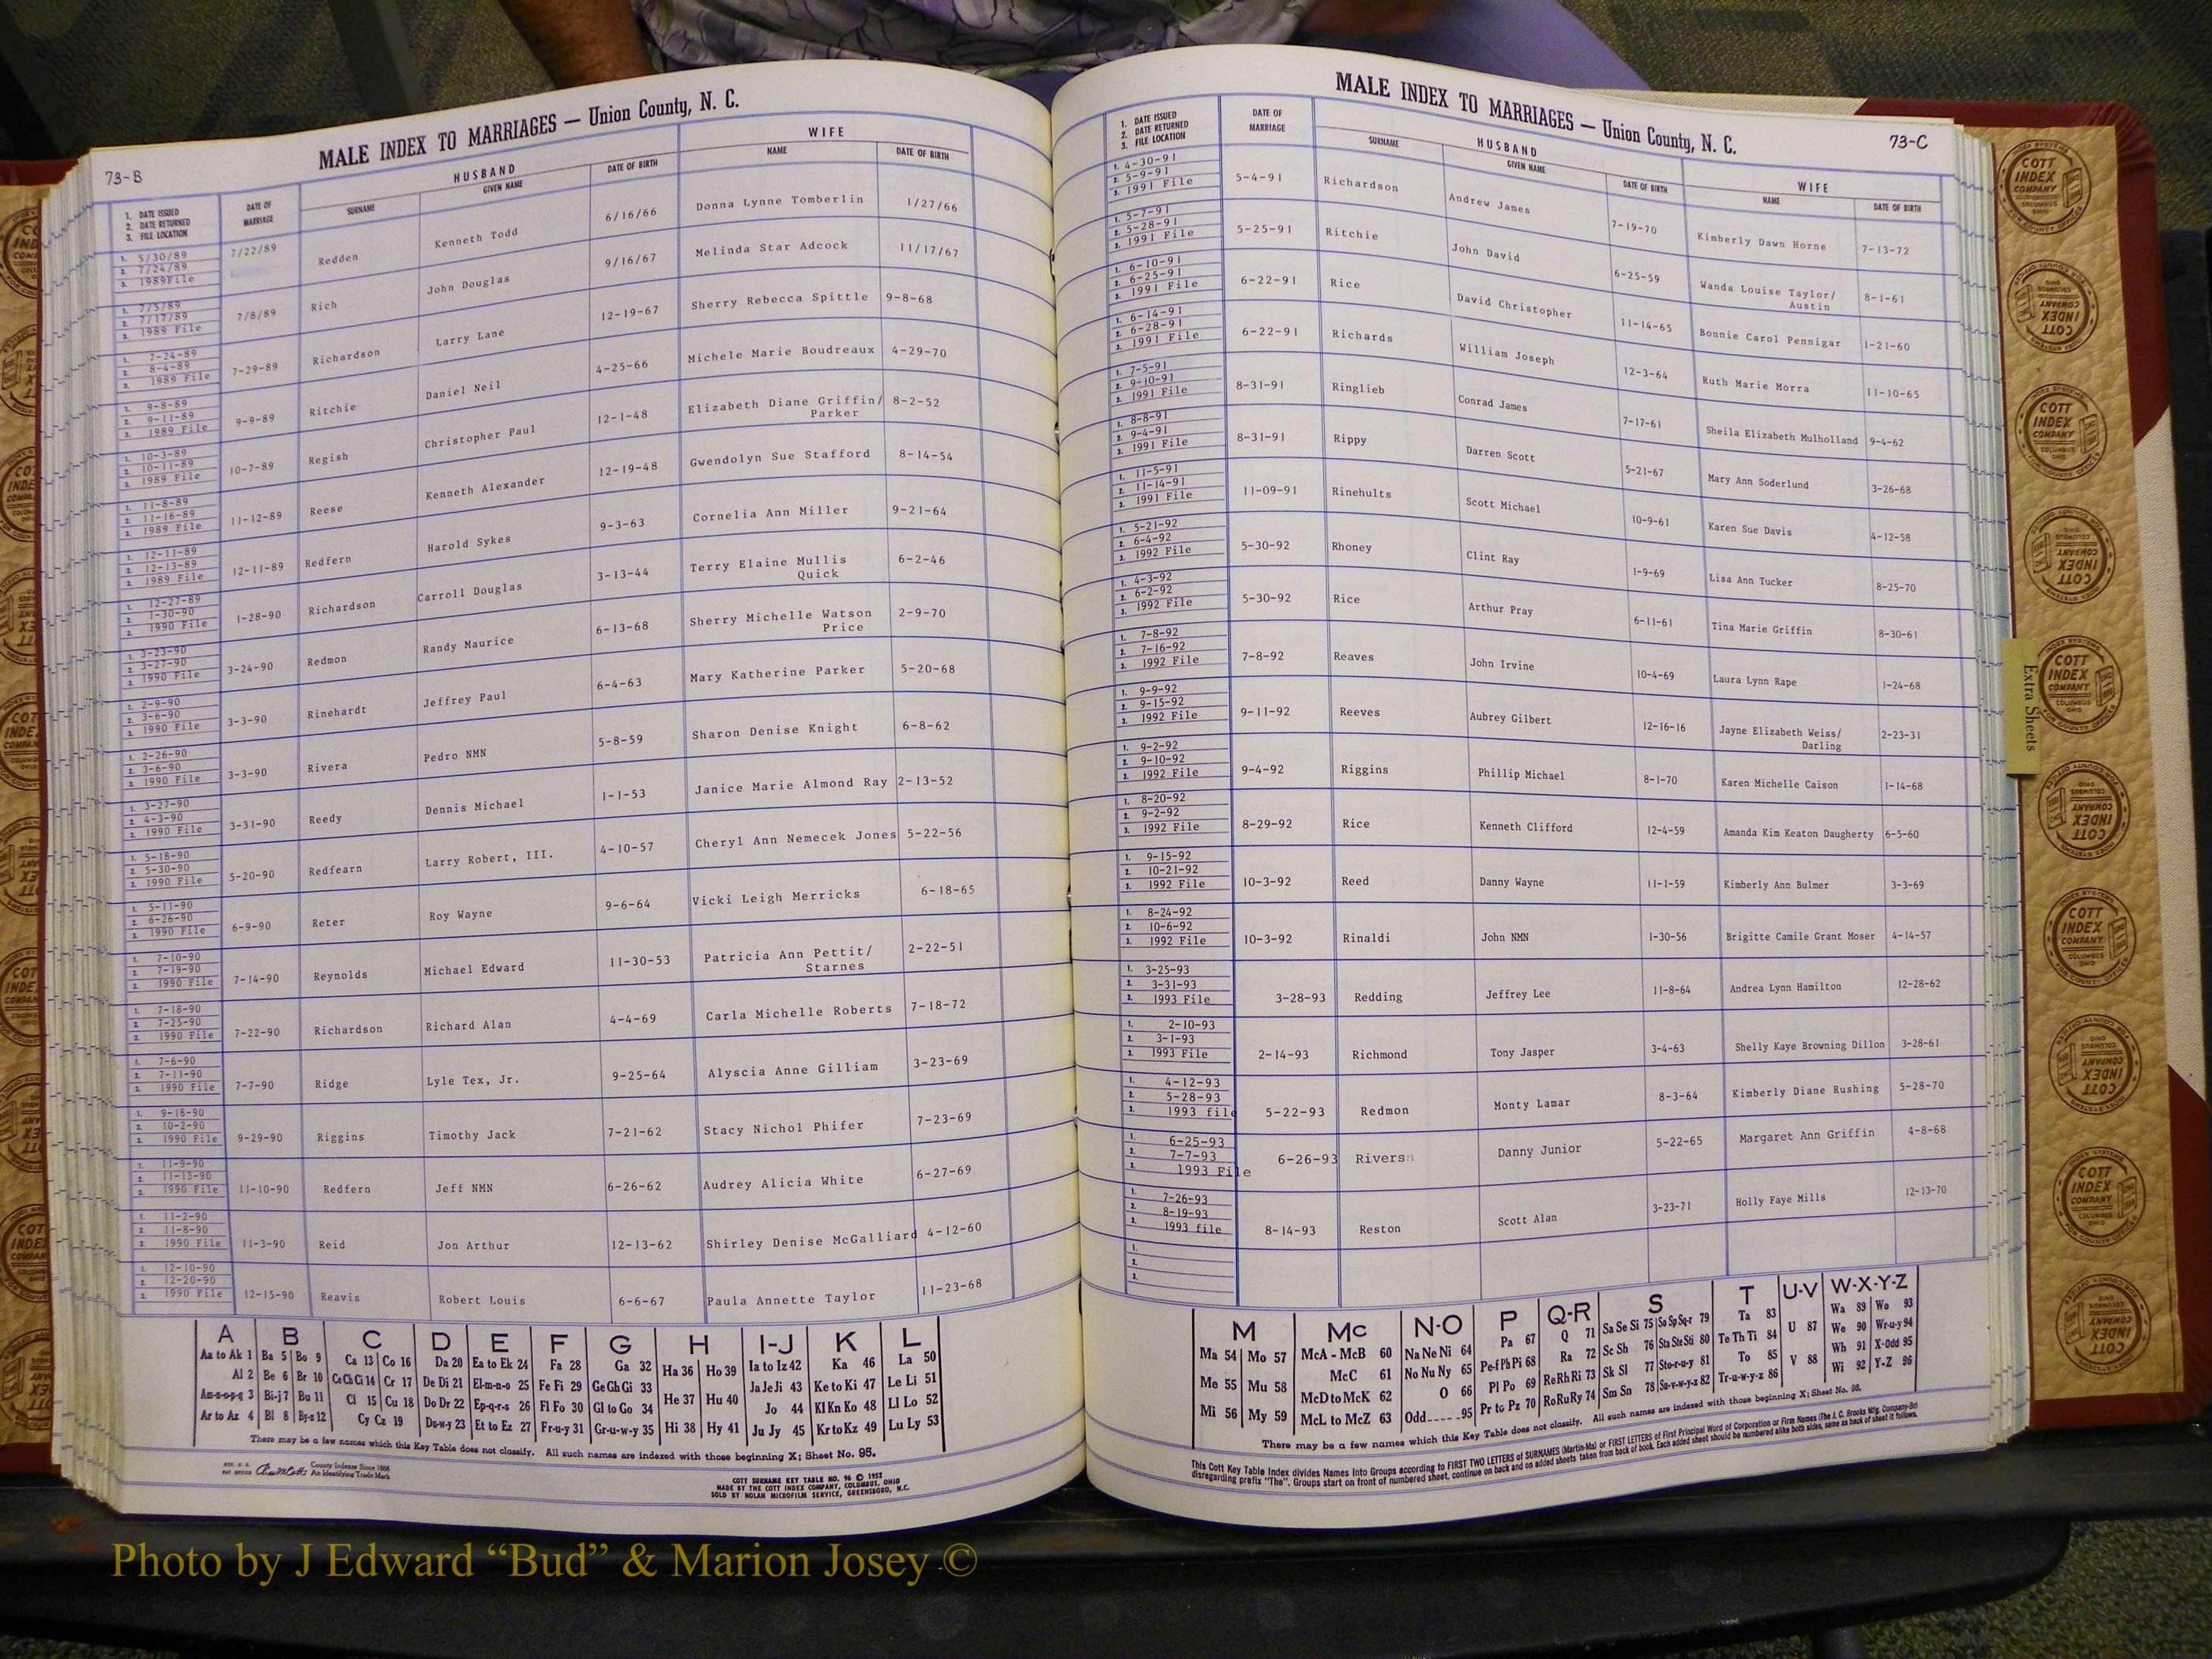 MALE INDEX TO MARRIAGES — Union County, N. C.
73-B
1. DATE ISSUED
2. DATE RETURNED
3. FILE LOCATION
DATE OF MARRIAGE
HUSBAND
SURNAME
GIVEN NAME
DATE OF BIRTH
WIFE
NAME
DATE OF BIRTH
1. 5/30/89
2. 7/24/89
3. 1989File
7/22/89 Redden Kenneth Todd 6/16/66 Donna Lynne Tomberlin 1/27/66
1. 7/5/89
2. 7/17/89
3. 1989 File
7/8/89 Rich John Douglas 9/16/67 Melinda Star Adcock 11/17/67
1. 7-24-89
2. 8-4-89
3. 1989 File
7-29-89 Richardson Larry Lane 12-19-67 Sherry Rebecca Spittle 9-8-68
1. 9-8-89
2. 9-11-89
3. 1989 File
9-9-89 Ritchie Daniel Neil 4-25-66 Michele Marie Boudreaux 4-29-70
1. 10-3-89
2. 10-11-89
3. 1989 File
10-7-89 Regish Christopher Paul 12-1-48 Elizabeth Diane Griffin/ 8-2-52
Parker
1. 11-8-89
2. 11-16-89
3. 1989 File
11-12-89 Reese Kenneth Alexander 12-19-48 Gwendolyn Sue Stafford 8-14-54
1. 12-11-89
2. 12-13-89
3. 1989 File
12-11-89 Redfern Harold Sykes 9-3-63 Cornelia Ann Miller 9-21-64
1. 12-27-89
2. 1-30-90
3. 1990 File
1-28-90 Richardson Carroll Douglas 3-13-44 Terry Elaine Mullis 6-2-46
Quick
1. 3-23-90
2. 3-27-90
3. 1990 File
3-24-90 Redmon Randy Maurice 6-13-68 Sherry Michelle Watson 2-9-70
Price
1. 2-9-90
2. 3-6-90
3. 1990 File
3-3-90 Rinehardt Jeffrey Paul 6-4-63 Mary Katherine Parker 5-20-68
1. 2-26-90
2. 3-6-90
3. 1990 File
3-3-90 Rivera Pedro NMN 5-8-59 Sharon Denise Knight 6-8-62
1. 3-27-90
2. 4-3-90
3. 1990 File
3-31-90 Reedy Dennis Michael 1-1-53 Janice Marie Almond Ray 2-13-52
1. 5-18-90
2. 5-30-90
3. 1990 File
5-20-90 Redfearn Larry Robert, III. 4-10-57 Cheryl Ann Nemecek Jones 5-22-56
1. 5-11-90
2. 6-26-90
3. 1990 File
6-9-90 Reter Roy Wayne 9-6-64 Vicki Leigh Merricks 6-18-65
1. 7-10-90
2. 7-19-90
3. 1990 File
7-14-90 Reynolds Michael Edward 11-30-53 Patricia Ann Pettit/ 2-22-51
Starnes
1. 7-18-90
2. 7-25-90
3. 1990 File
7-22-90 Richardson Richard Alan 4-4-69 Carla Michelle Roberts 7-18-72
1. 7-6-90
2. 7-11-90
3. 1990 File
7-7-90 Ridge Lyle Tex, Jr. 9-25-64 Alyscia Anne Gilliam 3-23-69
1. 9-18-90
2. 10-2-90
3. 1990 File
9-29-90 Riggins Timothy Jack 7-21-62 Stacy Nichol Phifer 7-23-69
1. 11-9-90
2. 11-13-90
3. 1990 File
11-10-90 Redfern Jeff NMN 6-26-62 Audrey Alicia White 6-27-69
1. 11-2-90
2. 11-8-90
3. 1990 File
11-3-90 Reid Jon Arthur 12-13-62 Shirley Denise McGalliard 4-12-60
1. 12-10-90
2. 12-20-90
3. 1990 File
12-15-90 Reavis Robert Louis 6-6-67 Paula Annette Taylor 11-23-68
A B C D E F G H I-J K L
Aa to Ak 1 Ba 5 Bo 9 Ca 13 Co 16 Da 20 Ea to Ek 24 Fa 28 Ga 32 Ha 36 Ho 39 Ia to Iz 42 Ka 46 La 50
Al 2 Be 6 Br 10 Ce Ch Ci 14 Cr 17 De Di 21 El-m-n-o 25 Fe Fi 29 Ge Gh Gi 33 He 37 Hu 40 Ja Je Ji 43 Ke to Ki 47 Le Li 51
Am-n-o-p-q 3 Bi-j 7 Bu 11 Cl 15 Cu 18 Do Dr 22 Ep-q-r-s 26 Fl Fo 30 Gl to Go 34 Jo 44 Kl Kn Ko 48 Ll Lo 52
Ar to Az 4 Bl 8 By-z 12 Cy Cz 19 Du-w-y 23 Et to Ez 27 Fr-u-y 31 Gr-u-w-y 35 Hi 38 Hy 41 Ju Jy 45 Kr to Kz 49 Lu Ly 53
There may be a few names which this Key Table does not classify. All such names are indexed with those beginning X; Sheet No. 95.
County Indexes Since 1888
An Identifying Trade Mark
COTT SURNAME KEY TABLE NO. 96 © 1952
MADE BY THE COTT INDEX COMPANY, COLUMBUS, OHIO
SOLD BY NOLAN MICROFILM SERVICE, GREENSBORO, N.C.
MALE INDEX TO MARRIAGES — Union County, N. C.
73-C
1. DATE ISSUED
2. DATE RETURNED
3. FILE LOCATION
DATE OF MARRIAGE
HUSBAND
SURNAME
GIVEN NAME
DATE OF BIRTH
WIFE
NAME
DATE OF BIRTH
1. 4-30-91
2. 5-9-91
3. 1991 File
5-4-91 Richardson Andrew James 7-19-70 Kimberly Dawn Horne 7-13-72
1. 5-7-91
2. 5-28-91
3. 1991 File
5-25-91 Ritchie John David 6-25-59 Wanda Louise Taylor/ 8-1-61
Austin
1. 6-10-91
2. 6-25-91
3. 1991 File
6-22-91 Rice David Christopher 11-14-65 Bonnie Carol Pennigar 1-21-60
1. 6-14-91
2. 6-28-91
3. 1991 File
6-22-91 Richards William Joseph 12-3-64 Ruth Marie Morra 11-10-65
1. 7-5-91
2. 9-10-91
3. 1991 File
8-31-91 Ringlieb Conrad James 7-17-61 Sheila Elizabeth Mulholland 9-4-62
1. 8-8-91
2. 9-4-91
3. 1991 File
8-31-91 Rippy Darren Scott 5-21-67 Mary Ann Soderlund 3-26-68
1. 11-5-91
2. 11-14-91
3. 1991 File
11-09-91 Rinehults Scott Michael 10-9-61 Karen Sue Davis 4-12-58
1. 5-21-92
2. 6-4-92
3. 1992 File
5-30-92 Rhoney Clint Ray 1-9-69 Lisa Ann Tucker 8-25-70
1. 4-3-92
2. 6-2-92
3. 1992 File
5-30-92 Rice Arthur Pray 6-11-61 Tina Marie Griffin 8-30-61
1. 7-8-92
2. 7-16-92
3. 1992 File
7-8-92 Reaves John Irvine 10-4-69 Laura Lynn Rape 1-24-68
1. 9-9-92
2. 9-15-92
3. 1992 File
9-11-92 Reeves Aubrey Gilbert 12-16-16 Jayne Elizabeth Weiss/ 2-23-31
Darling
1. 9-2-92
2. 9-10-92
3. 1992 File
9-4-92 Riggins Phillip Michael 8-1-70 Karen Michelle Caison 1-14-68
1. 8-20-92
2. 9-2-92
3. 1992 File
8-29-92 Rice Kenneth Clifford 12-4-59 Amanda Kim Keaton Daugherty 6-5-60
1. 9-15-92
2. 10-21-92
3. 1992 File
10-3-92 Reed Danny Wayne 11-1-59 Kimberly Ann Bulmer 3-3-69
1. 8-24-92
2. 10-6-92
3. 1992 File
10-3-92 Rinaldi John NMN 1-30-56 Brigitte Camile Grant Moser 4-14-57
1. 3-25-93
2. 3-31-93
3. 1993 File
3-28-93 Redding Jeffrey Lee 11-8-64 Andrea Lynn Hamilton 12-28-62
1. 2-10-93
2. 3-1-93
3. 1993 File
2-14-93 Richmond Tony Jasper 3-4-63 Shelly Kaye Browning Dillon 3-28-61
1. 4-12-93
2. 5-28-93
3. 1993 file
5-22-93 Redmon Monty Lamar 8-3-64 Kimberly Diane Rushing 5-28-70
1. 6-25-93
2. 7-7-93
3. 1993 File
6-26-93 Rivers Danny Junior 5-22-65 Margaret Ann Griffin 4-8-68
1. 7-26-93
2. 8-19-93
3. 1993 file
8-14-93 Reston Scott Alan 3-23-71 Holly Faye Mills 12-13-70
1.
2.
3.
M Mc N-O P Q-R S T U-V W-X-Y-Z
Ma 54 Mo 57 McA - McB 60 Na Ne Ni 64 Pa 67 Q 71 Sa Se Si 75 So Sp Sq-r 79 Ta 83 U 87 Wa 89 Wo 93
Me 55 Mu 58 McC 61 No Nu Ny 65 Pe-f Ph Pi 68 Ra 72 Sc Sh 76 Sta Ste Sti 80 Te Th Ti 84 We 90 Wr-u-y 94
McD to McK 62 O 66 Pl Po 69 Re Rh Ri 73 Sk Sl 77 Sto-r-u-y 81 To 85 V 88 Wh 91 X-Odd 95
Mi 56 My 59 McL to McZ 63 Odd-----95 Pr to Pz 70 Ro Ru Ry 74 Sm Sn 78 Su-v-w-y-z 82 Tr-u-w-y-z 86 Wi 92 Y-Z 96
There may be a few names which this Key Table does not classify. All such names are indexed with those beginning X; Sheet No. 95.
This Cott Key Table Index divides Names Into Groups according to FIRST TWO LETTERS of SURNAMES (Martin-Ma) or FIRST LETTERS of First Principal Word of Corporation or Firm Names (The J. C. Brooks Mfg. Company-Br)
disregarding prefix "The". Groups start on front of numbered sheet, continue on back and on added sheets taken from back of book. Each added sheet should be numbered alike both sides, same as back of sheet it follows.
Extra Sheets
COTT
INDEX
COMPANY
COLUMBUS
OHIO
Photo by J Edward “Bud” & Marion Josey ©